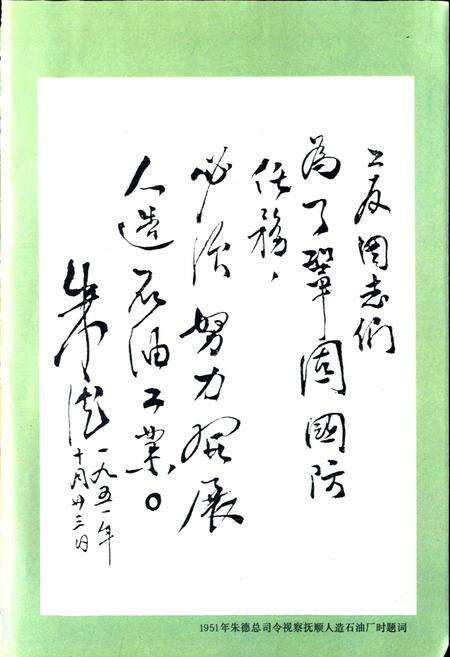 工友同志們
為了鞏固國防
任務，
必須努力發展
人造石油工業。
朱德
一九五一年
十月廿三日
1951年朱德总司令视察抚顺人造石油厂时题词